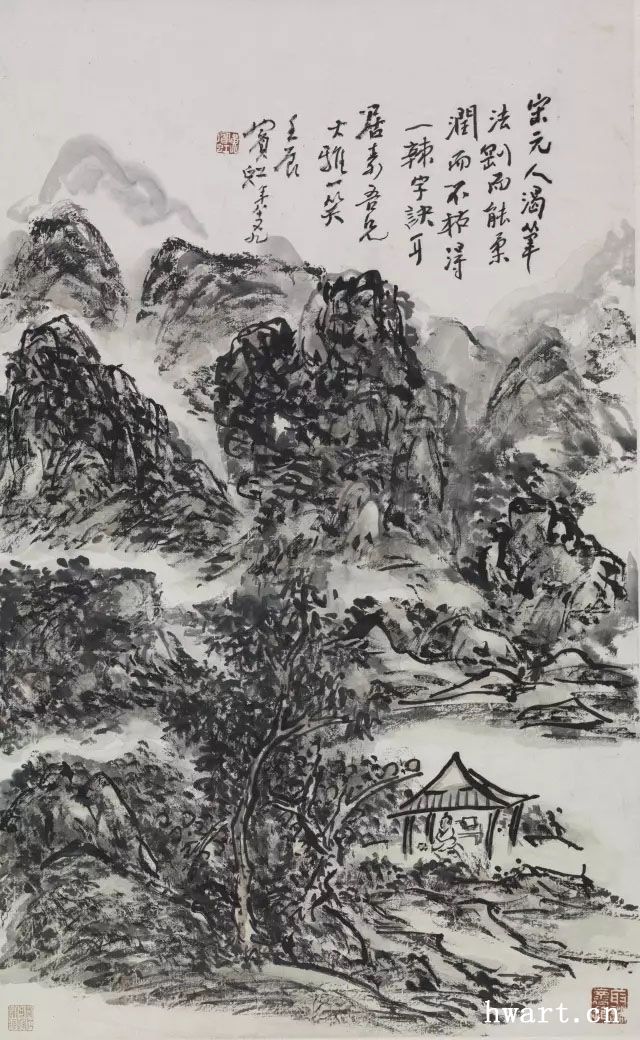 宋元人渴筆
法剛而能柔
潤而不枯得
一辣字訣耳
居素吾兄
大雅一笑
壬辰
賓虹年八十又九
hwart.cn